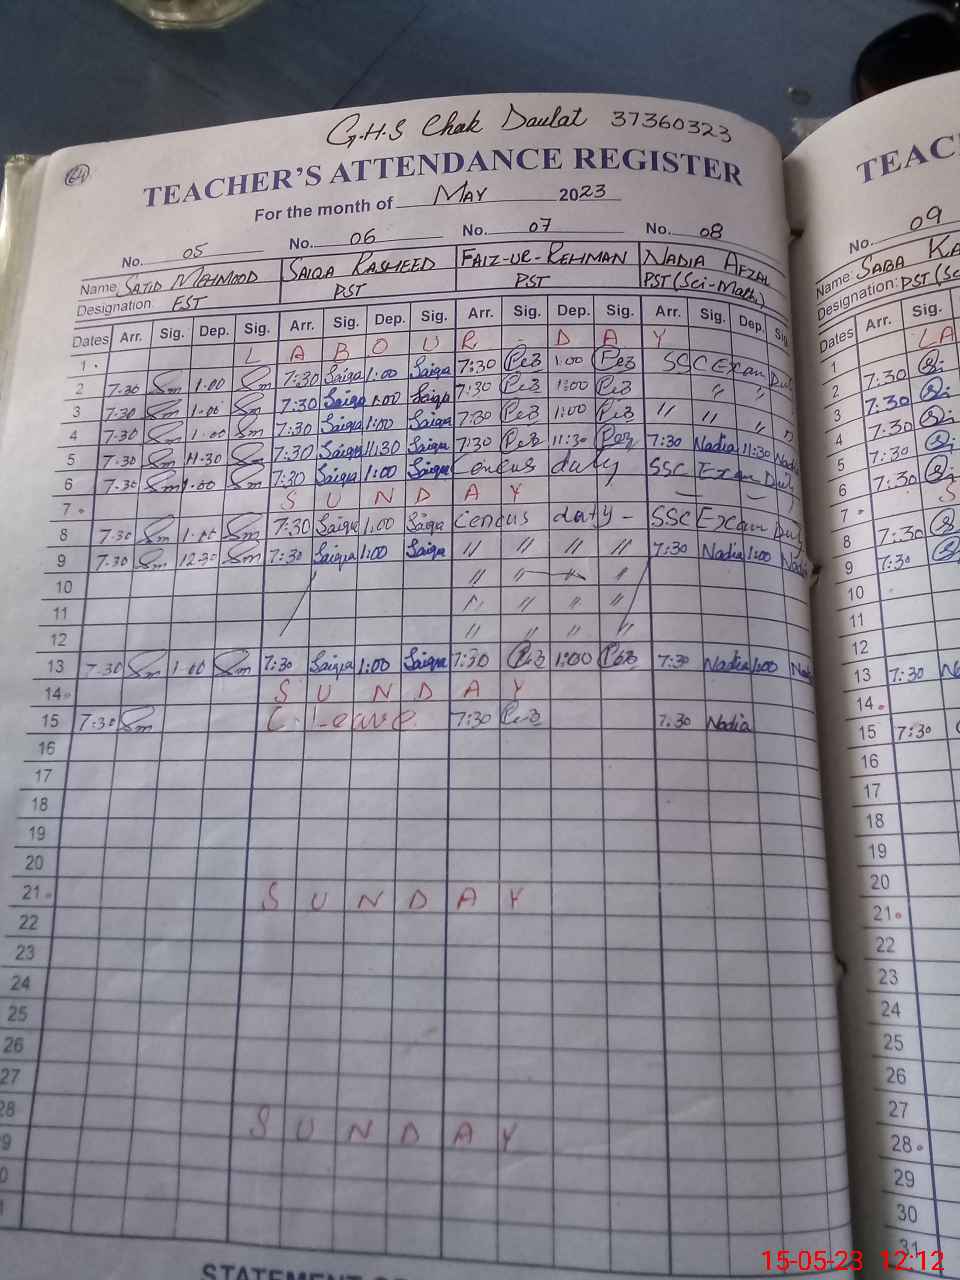 G.H.S Chak Daulat 37360323
64
TEACHER'S ATTENDANCE REGISTER
For the month of MAY 2023
No. 05 No. 06 No. 07 No. 08
Name SAJID MEHMOOD SAIQA RASHEED FAIZ-UR-REHMAN NADIA AFZAL
Designation. EST PST PST PST (Sci-Math)
Dates Arr. Sig. Dep. Sig. Arr. Sig. Dep. Sig. Arr. Sig. Dep. Sig. Arr. Sig. Dep. Sig
1 L A B O U R - D A Y
2 7:30 Sm 1:00 Sm 7:30 Saiqa 1:00 Saiqa 7:30 1:00 SSC Exam Duty
3 7:30 Sm 1:00 Sm 7:30 Saiqa 1:00 Saiqa 7:30 1:00 " " "
4 7:30 Sm 1:00 Sm 7:30 Saiqa 1:00 Saiqa 7:30 1:00 " " " "
5 7:30 Sm 11:30 Sm 7:30 Saiqa 11:30 Saiqa 7:30 11:30 7:30 Nadia 11:30 Nadia
6 7:30 Sm 1:00 Sm 7:30 Saiqa 1:00 Saiqa Cencus duty SSC Exam Duty
7 S U N D A Y — —
8 7:30 Sm 1:00 Sm 7:30 Saiqa 1:00 Saiqa Cencus duty - SSC Exam Duty
9 7:30 Sm 12:30 Sm 7:30 Saiqa 1:00 Saiqa " " " " 7:30 Nadia 1:00 Nadia
10 " " " "
11 " " " "
12 " " " "
13 7:30 Sm 1:00 Sm 7:30 Saiqa 1:00 Saiqa 7:30 1:00 7:30 Nadia 1:00 Nadia
14 S U N D A Y
15 7:30 Sm C. Leave 7:30 7:30 Nadia
16
17
18
19
20
21 S U N D A Y
22
23
24
25
26
27
28 S U N D A Y
9
0
STATEMENT
TEAC
No. 09
Name: SABA
Designation: PST (Sc
Dates Arr. Sig.
1 LA
2 7:30
3 7:30
4 7:30
5 7:30
6 7:30
7 S
8 7:30
9 7:30
10
11
12
13 7:30
14
15 7:30
16
17
18
19
20
21
22
23
24
25
26
27
28
29
30
31
15-05-23 12:12